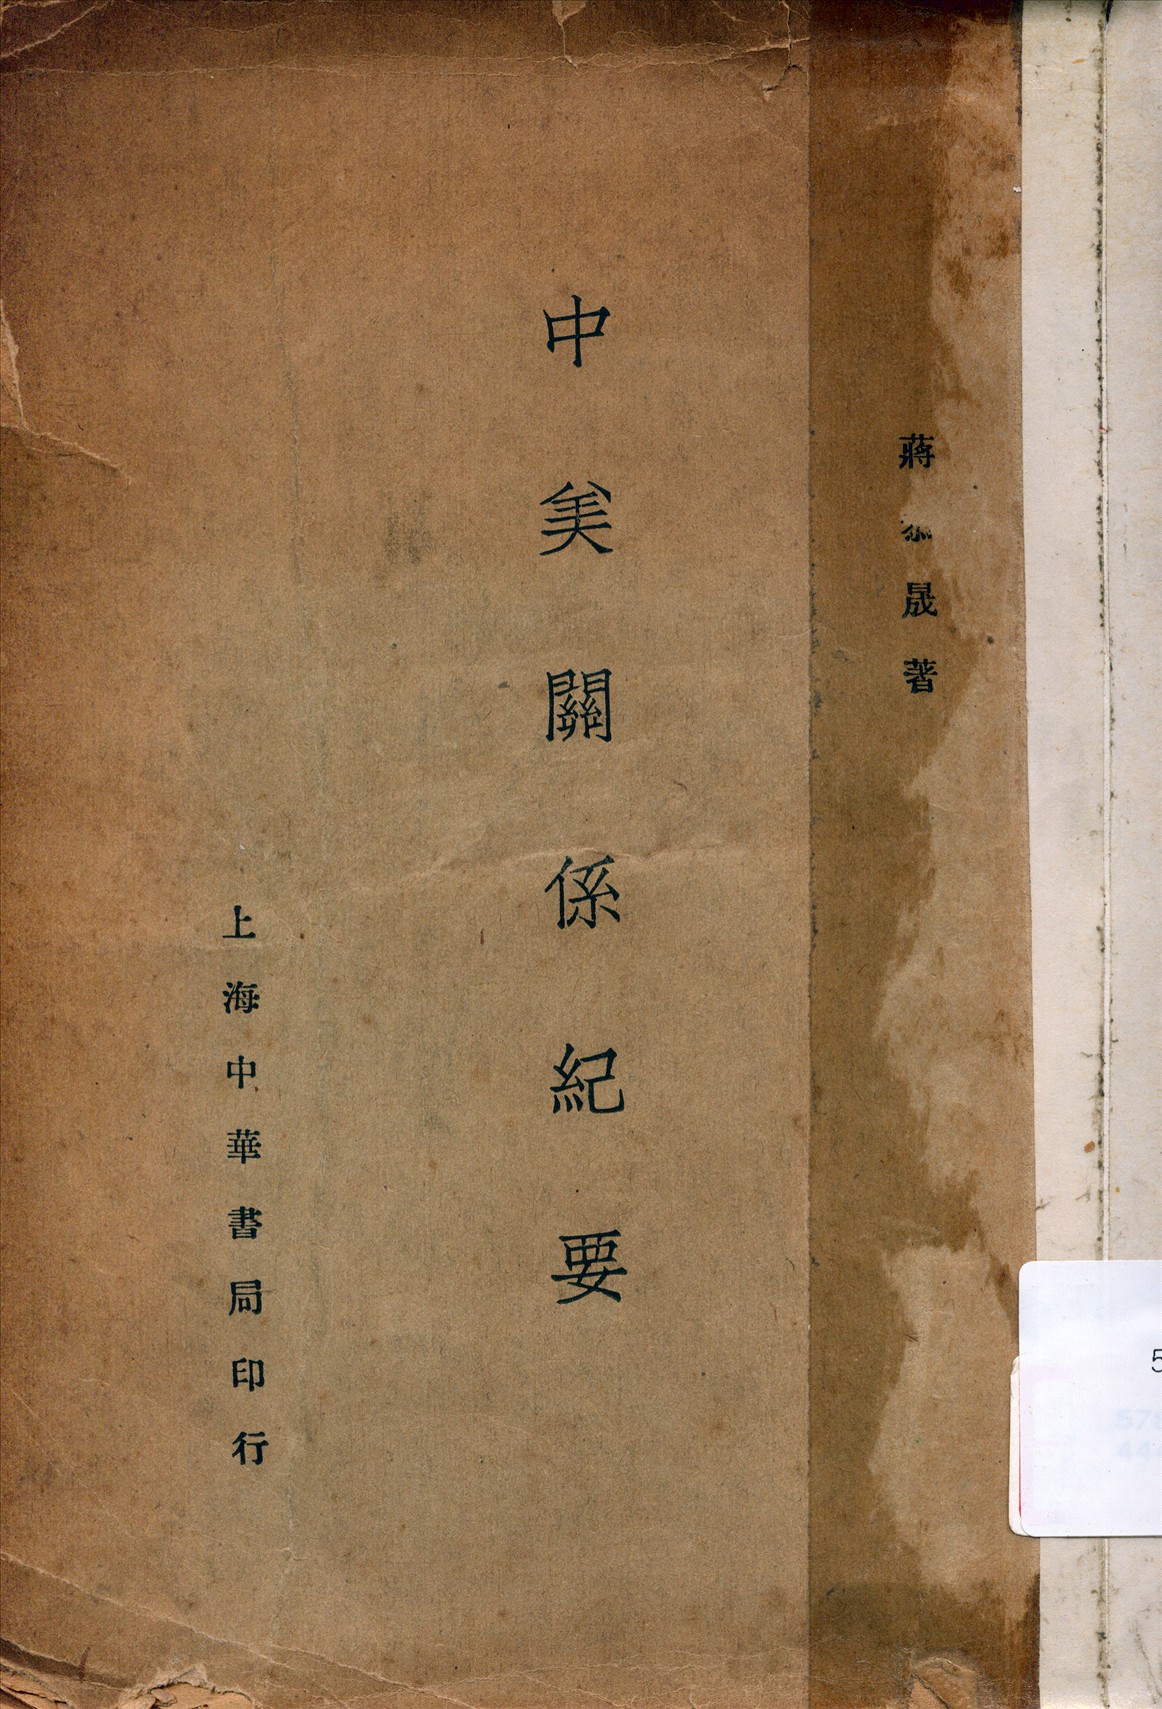 蔣恭晟著
中美關係紀要
上海中華書局印行
5
578